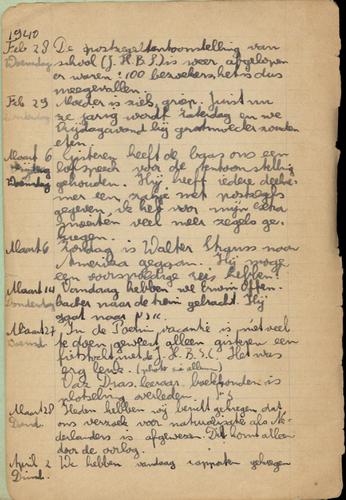 1940
Feb 28 De postzegeltentoonstelling van
Woensdag school (J.H.B.S.) is weer afgelopen
er waren ± 100 bezoekers het is dus
meegevallen.
Feb 29 Moeder is ziek, griep. Juist nu
ze jarig wordt zaterdag en we
Vrijdagavond bij grootmoeder zouden
eten.
Maart 6 Gisteren heeft de baas ons een
Woensdag toespraak voor de tentoonstelling
gehouden. Hij heeft iedere deelne-
mer een zakje met postzegels
gegeven, ik heb voor mijn extra
veel meer zegels ge-
kregen.
Maart 6 Zondag is Walter Strauss naar
Amerika gegaan. Hij moge
een voorspoedige reis hebben!
Maart 14 Vandaag hebben we Erwin Offen-
Donderdag bacher naar de trein gebracht. Hij
gaat naar
Maart 27 In de Poerim vacantie is niet veel
Woensd. te doen geweest alleen gisteren een
fietstocht met de J.H.B.S.C. Het was
erg leuk. (photo in album)
Vaz Dias, leeraar boekhouden is
plotseling overleden.
Maart 28 Heden hebben wij bericht gekregen dat
Dond. ons verzoek voor naturalisatie als Ne-
derlanders is afgewezen. Dit komt alleen
door de oorlog.
April 2 We hebben vandaag rapporten gekregen
Dinsd.